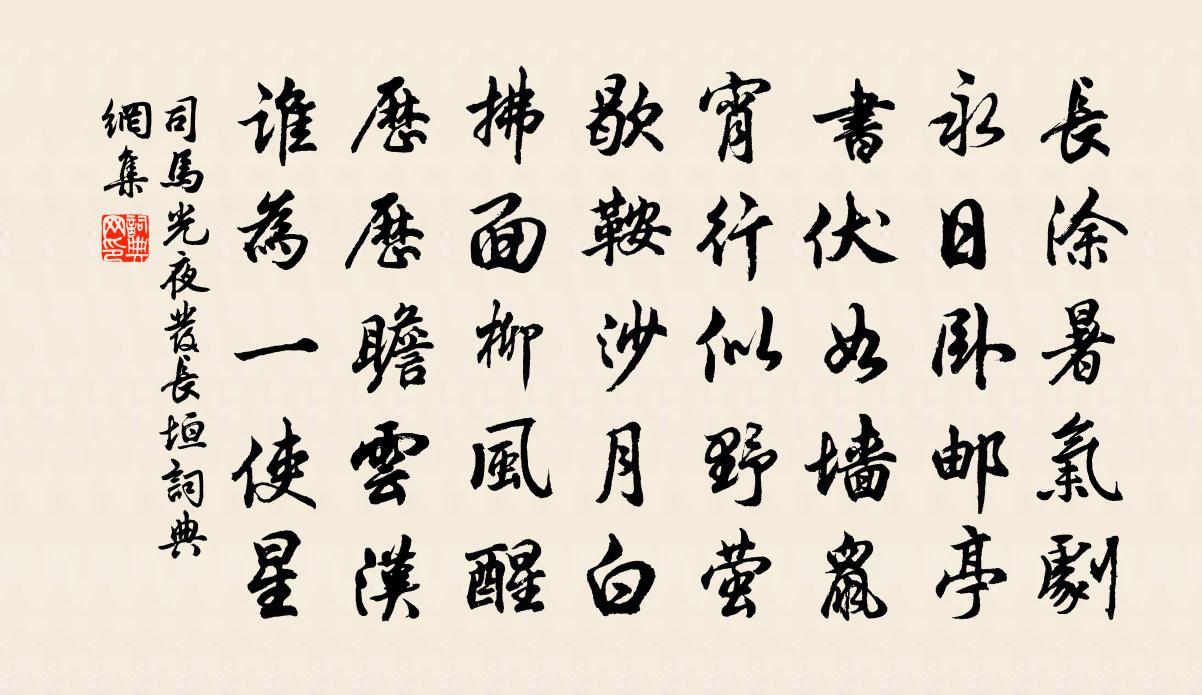 長涂暑氣劇
永日卧邮亭
書伏如墙鼠
宵行似野萤
歇鞍沙月白
拂面柳風醒
歷歷瞻雲漢
誰為一使星
司馬光夜發長垣詞典
網集
詞典
网印